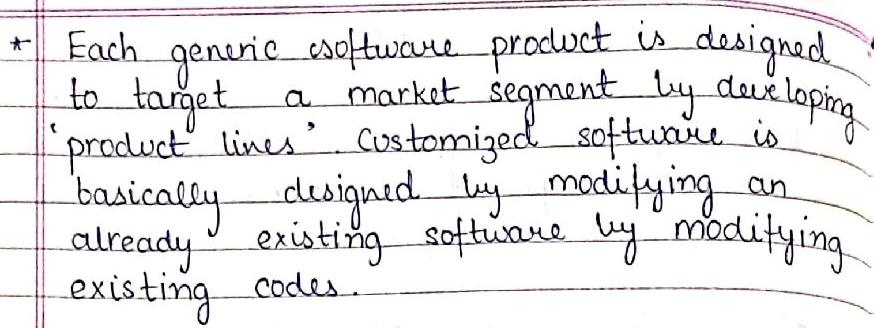 * Each generic software product is designed
to target a market segment by developing
'product lines'. Customized software is
basically designed by modifying an
already existing software by modifying
existing codes.